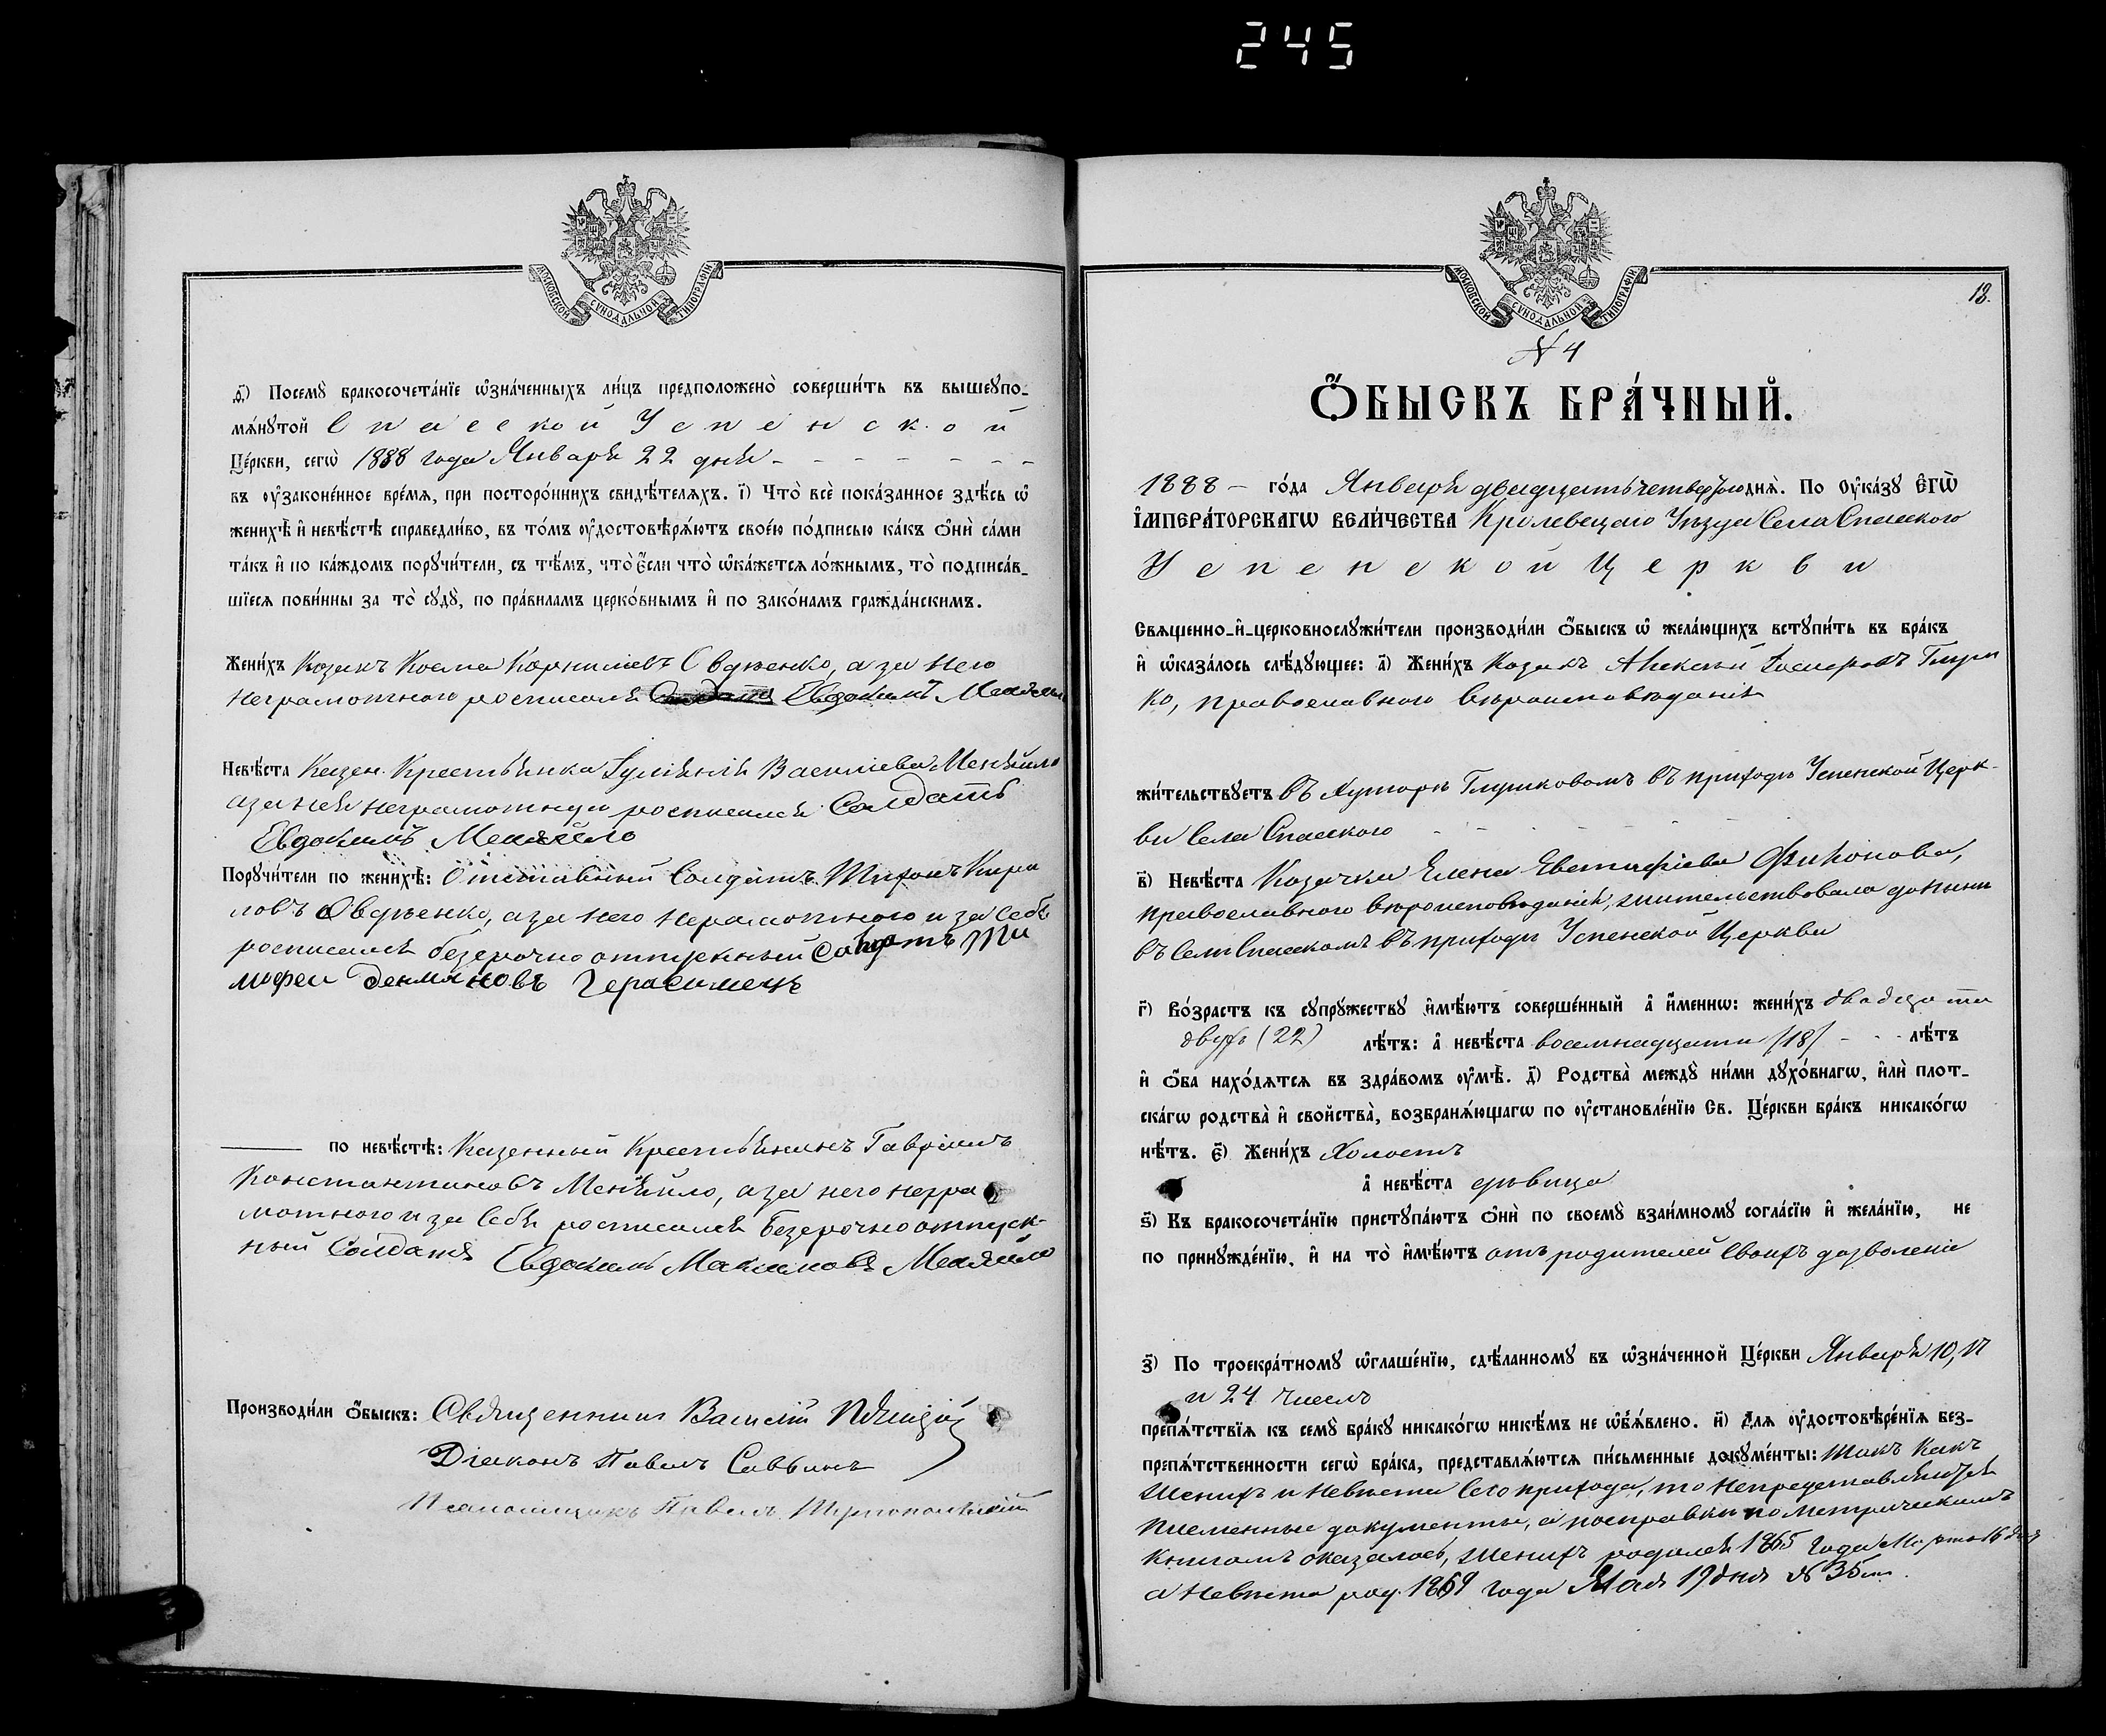 245
МОСКОВСКОЙ СѴНОДАЛЬНОЙ ТИПОГРАФІИ
д҃) Посемꙋ̀ бракосочета́нїе ѡ҆зна́ченныхъ ли́цъ предположено̀ соверши́ть въ вышеꙋпо-
мѧ́нꙋтой Спасской Успенской
Це́ркви, сегѡ̀ 1888 года Января 22 дня - - - - - - -
въ ᲂу҆законе́нное вре́мѧ, при посторо́ннихъ свидѣ́телѧхъ. і҃) Что̀ всѐ пока́занное здѣ́сь ѡ҆
женихѣ̀ и҆ невѣ́стѣ справедли́во, въ то́мъ ᲂу҆достовѣрѧ́ютъ свое́ю по́дписью ка́къ ѻ҆нѝ са́ми
та́къ и҆ по ка́ждомъ порꙋчи́тели, съ тѣ́мъ, что̀ є҆́сли что̀ ѡ҆ка́жетсѧ ло́жнымъ, то̀ подписа́в-
шїесѧ пови́нны за то̀ сꙋдꙋ̀, по пра́виламъ церко́внымъ и҆ по зако́намъ гражда́нскимъ.
Жени́хъ Козакъ Косма Корнилиевъ Овдѣенко, а за него
неграмотного росписался Евдокимъ
Невѣ́ста Казен. Крестьянка Іуліянія Василіева Меняйло
а за нея неграмотную росписался Солдатъ
Евдокимъ Меняйло
Порꙋчи́тели по женихѣ̀: Отставный Солдатъ Тихонъ Кири
ловъ Овдѣенко, а за него неграмотного и за себя
росписался безсрочно отпускный Солдатъ Ти
мофеи Демяновъ Герасимецъ
по невѣ́стѣ: Казенный Крестьянинъ Гавріилъ
Константиновъ Меняйло, а за него негра
мотного и за себя росписался безсрочно отпуск-
ный Солдатъ Евдокимъ Максимовъ Меняйло
Производи́ли ѻ҆́быскъ: Священникъ Василій
Діаконъ Павелъ Саввинъ
Псаломщикъ Павелъ
МОСКОВСКОЙ СѴНОДАЛЬНОЙ ТИПОГРАФІИ
N 4
Ѻ҆́БЫСКЪ БРА́ЧНЫЙ.
1888 - го́да Января двадцать четвертого днѧ̀. По ᲂу҆ка́зꙋ Є҆гѡ̀
І҆мпера́торскагѡ вели́чества Кролевецкаго Уѣзда Села Спасского
Успенской Церкви
Свѧщенно-и҆-церковнослꙋжи́тели производи́ли ѻ҆́быскъ ѡ҆ жела́ющихъ встꙋпи́ть въ бра́къ
и҆ ѡ҆каза́лось слѣ́дꙋющее: а҃) Жени́хъ Козакъ Алексѣй Глуш
ко, православного вѣроисповѣданія
жи́тельствꙋетъ въ Хуторѣ Глушковомъ въ приходѣ Успенской Церк-
ви Села Спасского
в҃) Невѣ́ста Козачка Елена Евстафіева Филонова,
православного вѣроисповѣданія, жительствовала до нынѣ
въ Селѣ Спасскомъ въ приходѣ Успенской Церкви
г҃) Во́зрастъ къ сꙋпрꙋ́жествꙋ и҆мѣ́ютъ соверше́нный а҆̀ и҆́меннѡ: жени́хъ двадцати
двухъ (22) лѣ́тъ: а҆̀ невѣ́ста восемнадцати /18/ - - - лѣ́тъ
и҆ ѻ҆́ба нахо́дѧтсѧ въ здра́вомъ ᲂу҆мѣ̀. д҃) Родства̀ междꙋ̀ ни́ми дꙋхо́внагѡ, и҆лѝ плот-
ска́гѡ родства̀ и҆ свойства̀, возбранѧ́ющагѡ по ᲂу҆становле́нїю Св. Це́ркви бра́къ никако́гѡ
нѣ́тъ. є҃) Жени́хъ Холостъ
а҆̀ невѣ́ста дѣвица
ѕ҃) Къ бракосочета́нїю пристꙋпа́ютъ ѻ҆нѝ по своемꙋ̀ взаи́мномꙋ согла́сїю и҆ жела́нїю, не
по принꙋжде́нїю, и҆ на то̀ и҆мѣ́ютъ отъ родителей своихъ дозволеніе
з҃) По троекра́тномꙋ ѡ҆глаше́нїю, сдѣ́ланномꙋ въ ѡ҆зна́ченной Це́ркви Января 10, 17
и 24 числъ
препѧ́тствїѧ къ семꙋ̀ бра́кꙋ никако́гѡ никѣ́мъ не ѡ҆б̾ѧ́влено. и҃) Длѧ ᲂу҆достовѣре́нїѧ без-
препѧ́тственности сегѡ̀ бра́ка, представлѧ́ютсѧ пи́сьменные докꙋме́нты: такъ какъ
женихъ и невѣста сего прихода, то непредставляются
писменные документы, а посправки по метрическимъ
книгамъ оказалось, женихъ родился 1865 года Марта 16 дня
а невѣста род. 1869 года Мая 19 дня № 35